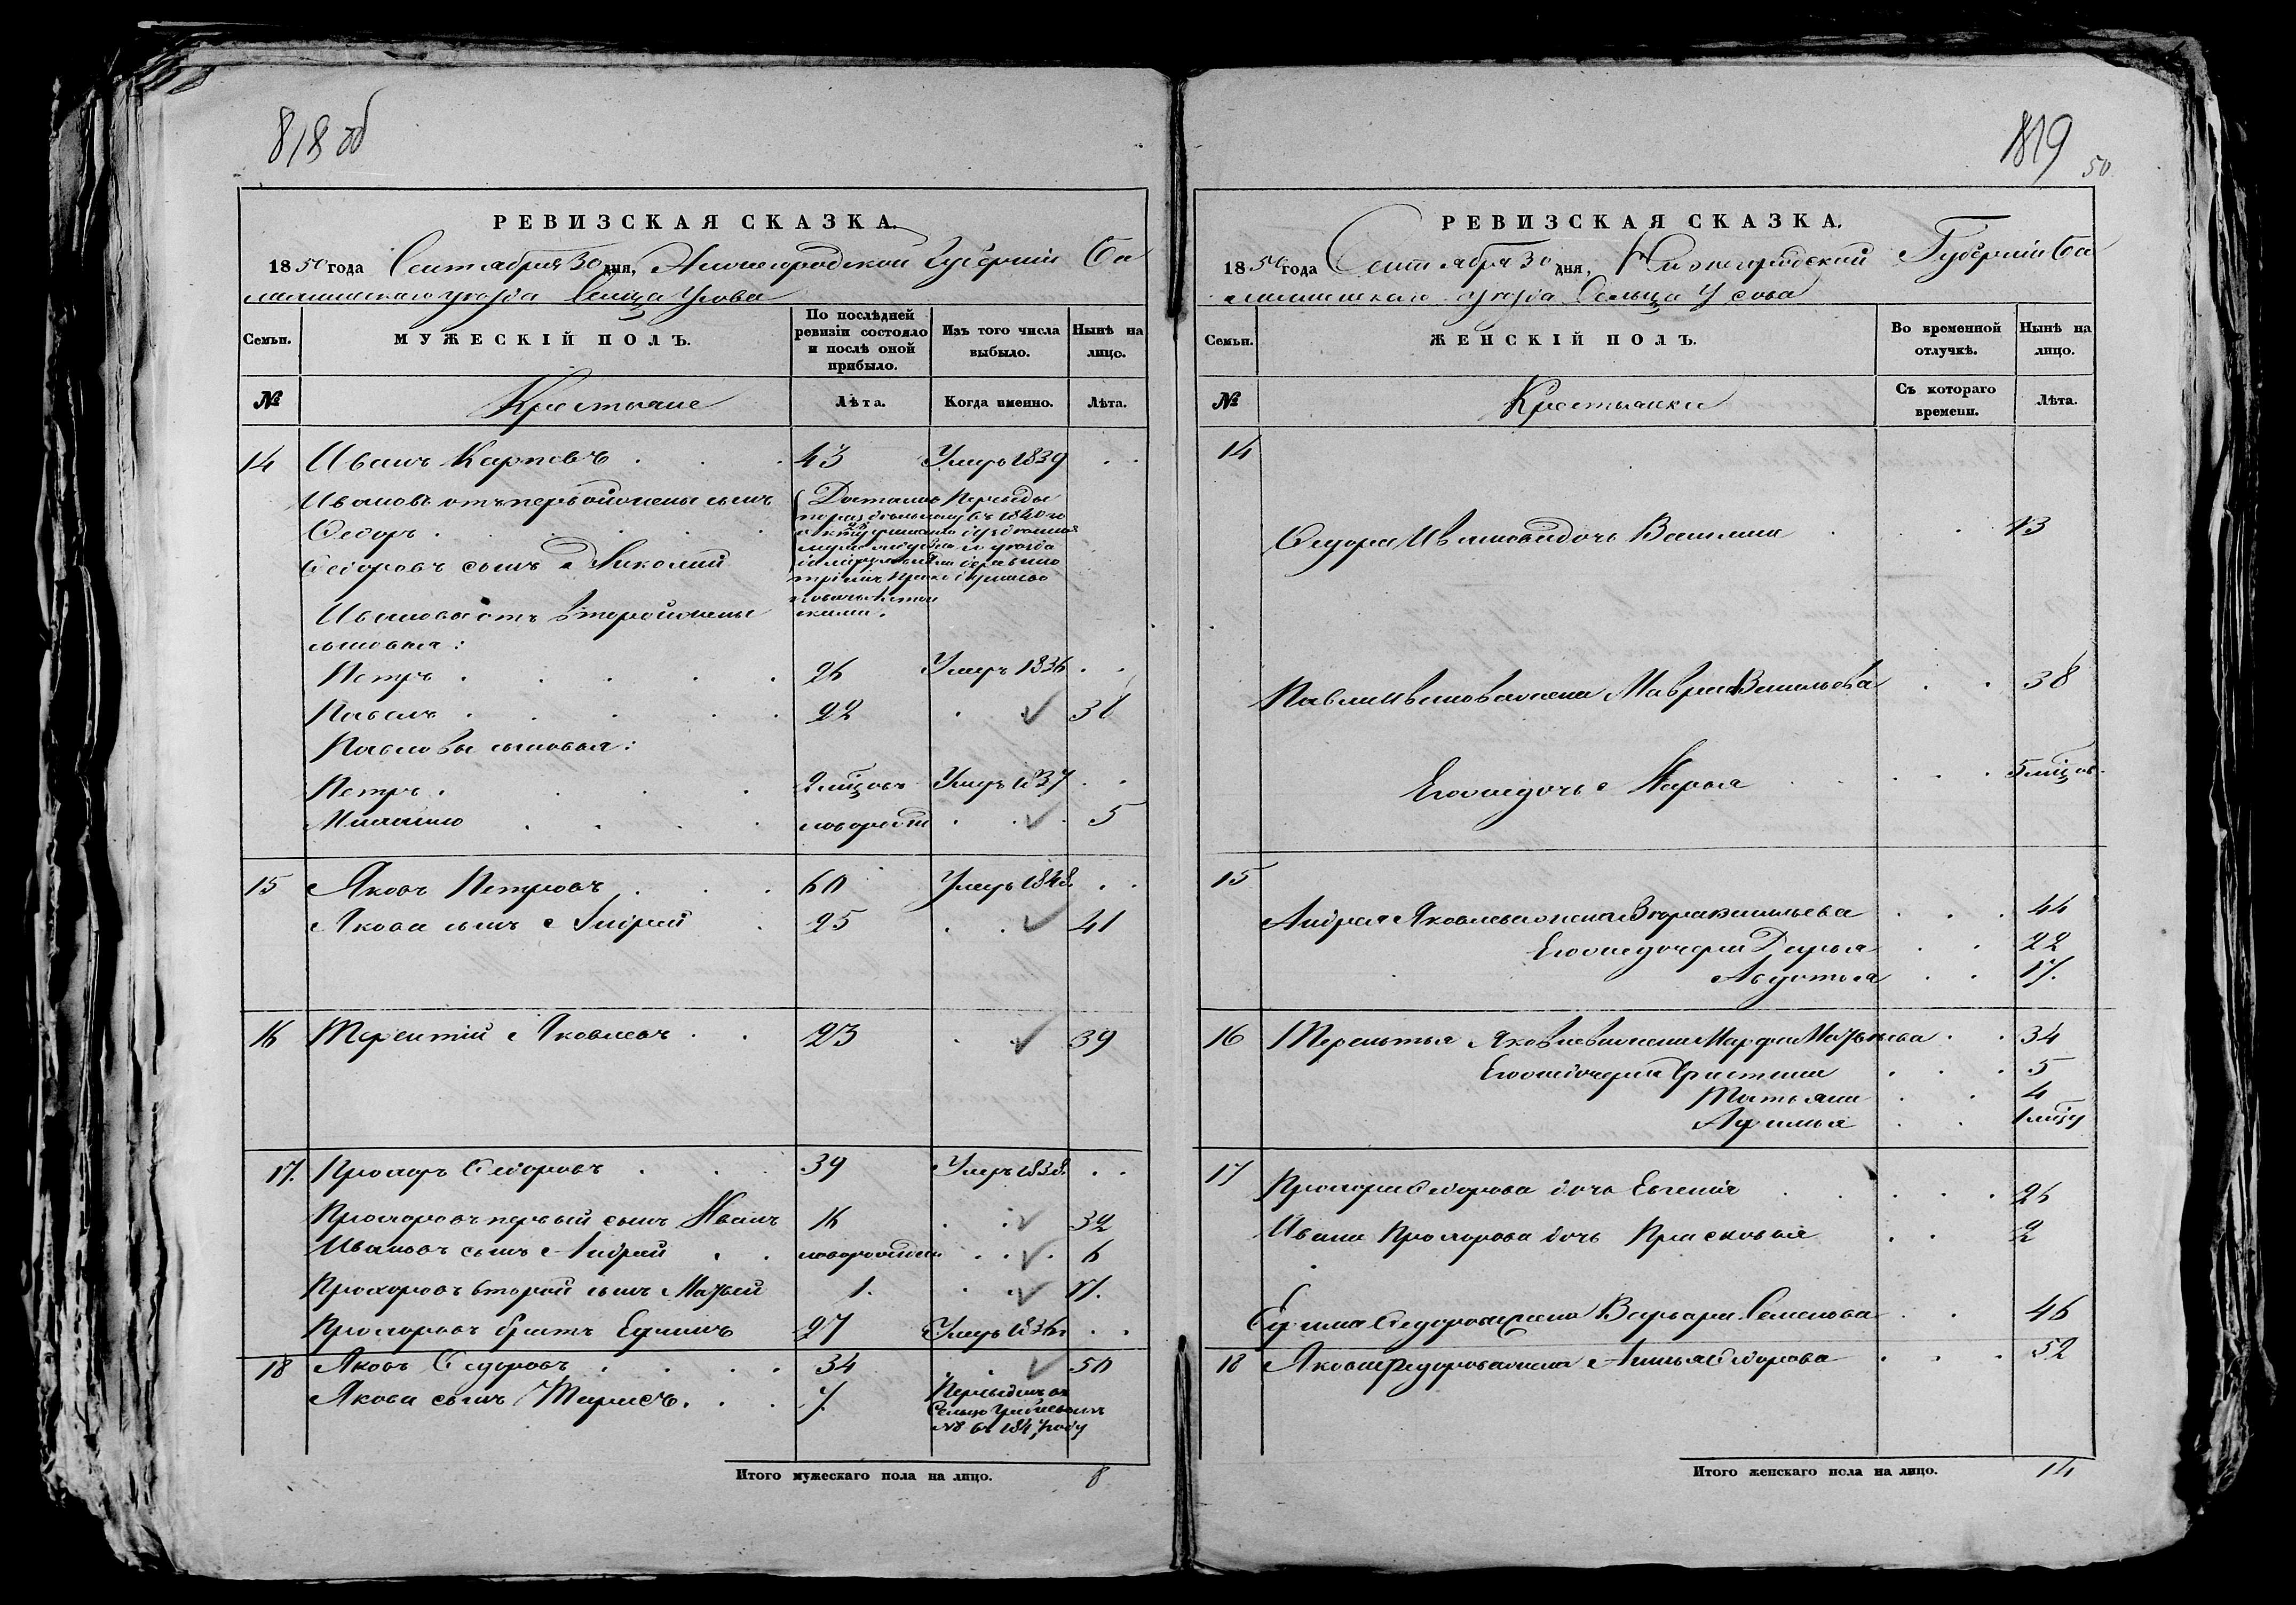 818 об
РЕВИЗСКАЯ СКАЗКА.
1850 года Сентября 30 дня, Нижегородской Губернии Ба
лахнинскаго уезда Сельца Усова
Семьи.
МУЖЕСКІЙ ПОЛЪ.
По послѣдней ревизіи состояло и послѣ оной прибыло.
Изъ того числа выбыло.
Нынѣ на лицо.
№
Крестьяне
Лѣта.
Когда именно.
Лѣта.
14 Иванъ Карповъ . . . 43 Умеръ 1839 . .
Ивановъ отъ первой жены сынъ
Федоръ . . .
Федоровъ сынъ Николай
Ивановы отъ второй жены
сыновья:
Петръ . . . . . 26 Умеръ 1836 . .
Павелъ . . . . . 22 . ✓ 38
Павловы сыновья:
Петръ . . . . 2 мѣсцовъ Умеръ 1837 . .
Михайло . . . . новорожд . . ✓ . 5
15 Яковъ Петровъ . . . 60 Умеръ 1848. . .
Якова сынъ Андрей . 25 . . ✓ 41
16 Терентій Яковлевъ . . 23 . ✓ 39
17. Прохоръ Федоровъ . . . 39 Умеръ 1838. . .
Прохоровъ первый сынъ Иванъ 16 . ✓ 32
Ивановъ сынъ Андрей . . новорожден . . ✓ . 6
Прохоровъ второй сынъ Матвей 1. . ✓ 17.
Прохоровъ братъ Ефимъ 27 Умеръ 1836 . .
18 Яковъ Федоровъ . . . . 34 . . ✓ 50
Якова сынъ Тарасъ . . . 7.
Переведенъ въ
Сельцо
№8 въ 1847 году
Итого мужескаго пола на лицо. 8
819
50
РЕВИЗСКАЯ СКАЗКА.
1850 года Сентября 30 дня, Нижегородской Губерніи Ба
лахнинскаго уезда Сельца Усова
Семьи.
ЖЕНСКІЙ ПОЛЪ.
Во временной отлучкѣ.
Нынѣ на лицо.
№
Крестьянки
Съ котораго времени.
Лѣта.
14
Федора Иванова дочь Василиса . . . 13
Павла Иванова жена Мавра Васильева . . 38
Его же дочь Марья . . . . 5 мѣсцов.
15
Андрея Яковлева жена Васильева . . . 44
Его же дочери Дарья . . 22
Авдотья . . 17.
16 Терентья Яковлева жена Марфа Матвѣева . . 34
Его же дочери Христина . . . 5
Татьяна . . 4
Афимья . . 1 мѣсцу
17 Прохора Федорова дочь Евгенія . . . . . 26
Ивана Прохорова дочь Прасковья . . 2
Ефима Федорова жена Варвара Семенова . . 46
18 Якова Федорова жена Анна Федорова . . . 52
Итого женскаго пола на лицо. 14